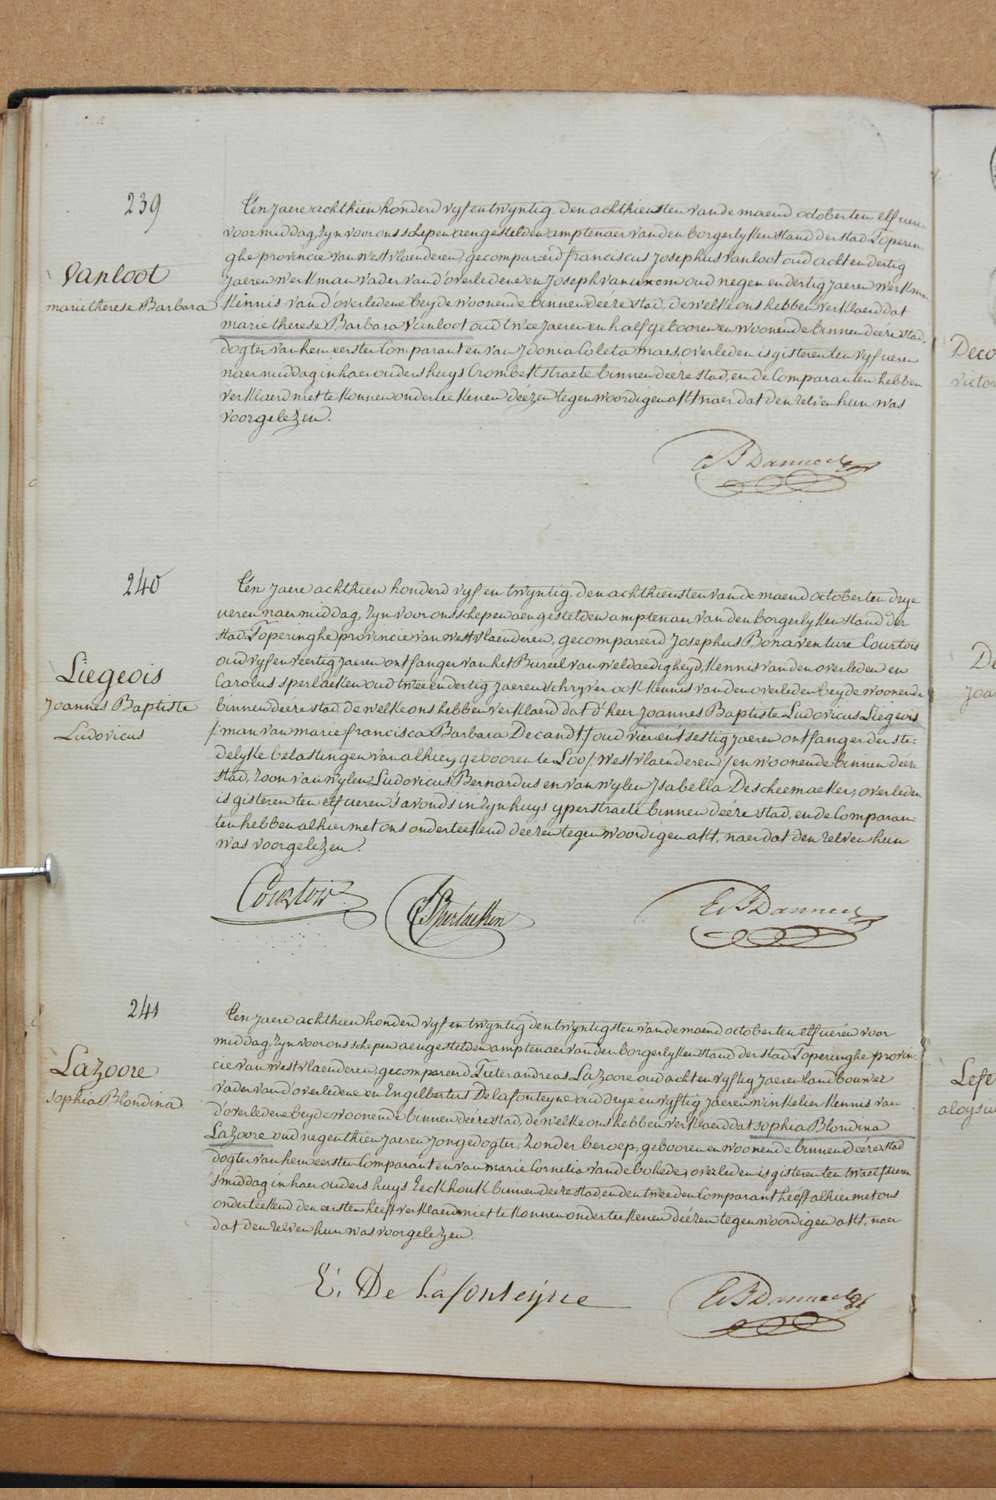 239
Vanloot
marie therese Barbara
Ten jaere achthien honderd vyf en twyntig, den achthiensten van de maend october ten elf ueren
voormiddag, zyn voor ons schepen aengestelden amptenaer van den borgerlyken stand der stad Poperin
ghe provincie van westvlaenderen, gecompareerd franciscus josephus vanloot oud acht en dertig
jaeren werkman vader van d'overledene en joseph oud negen en dertig jaeren werkman
kennis van d'overledene beyde woonende binnen deeze stad, de welke ons hebben verklaerd dat
marie therese Barbara Vanloot oud twee jaeren en half gebooren en woonende binnen deéze stad,
dogter van hem eersten Comparant en van Idonia Coleta maes, overleden is gisteren ten vyf ueren
naermiddag in haer ouders huys Crombekstraete binnen deeze stad, en de Comparanten hebben
verklaerd niet te konnen onderteekenen deézen tegenwoordigen akt naer dat den zelven hun was
voorgelezen.
240
Liegeois
Joannes Baptiste
Ludovicus
Ten jaere achthien honderd vyf en twyntig, den achthiensten van de maend october ten drye
ueren naermiddag, zyn voor ons schepen aengestelden amptenaer van den borgerlyken stand der
stad Poperinghe provincie van westvlaenderen, gecompareerd Josephus Bonaventure Courtois
oud vyf en veertig jaeren ontfanger van het Bureel van weldaedigheyd, kennis van den overleden en
Carolus sperlaeken oud twee en dertig jaeren schryver ook kennis van den overleden beyde woonende
binnen deeze stad, de welke ons hebben verklaerd dat d'heer Joannes Baptiste Ludovicus Liegeois
/ man van marie francisca Barbara Decandt / oud vier en tsestig jaeren ontfanger der ste-
delyke belastingen van alhier, gebooren te Loo / Westvlaenderen / en woonende binnen deéze
stad, zoon van wylen Ludovicus Bernardus en van wylen Isabella De scheemaeker, overleden
is gisteren ten elf ueren s'avonds in zyn huys yperstraete binnen deéze stad, en de Comparan
ten hebben alhier met ons onderteekend deézen tegenwoordigen akt, naer dat den zelven hun
was voorgelezen.
Courtois
C Sperlaeken
241
Lazoore
Sophia Blondina
Ten jaere achthien honderd vyf en twyntig den twyntigsten van de maend october ten elf ueren voor
middag, zyn voor ons schepen aengestelden amptenaer van den borgerlyken stand der stad Poperinghe provin-
cie van westvlaenderen, gecompareerd Pieter andreas Lazoore oud acht en vyftig jaeren landbouwer
vader van d'overledene en Engelbertus De lafonteyne oud drye en vyftig jaeren winkelier kennis van
d'overledene beyde woonende binnen deéze stad, de welke ons hebben verklaerd dat sophia Blondina
Lazoore oud negenthien jaeren jonge dogter, zonder beroep, gebooren en woonende binnen deéze stad
dogter van hem eersten Comparant en van marie Cornelia overleden is gisteren ten twaelf ueren
s'middag in haer ouders huys Eeckhouk binnen deéze stad en den tweeden Comparant heéft alhier met ons
onderteekend den eersten heéft verklaerd niet te konnen onderteekenen deézen tegenwoordigen akt, naer
dat den zelven hun was voorgelezen.
E. De Lafonteÿne